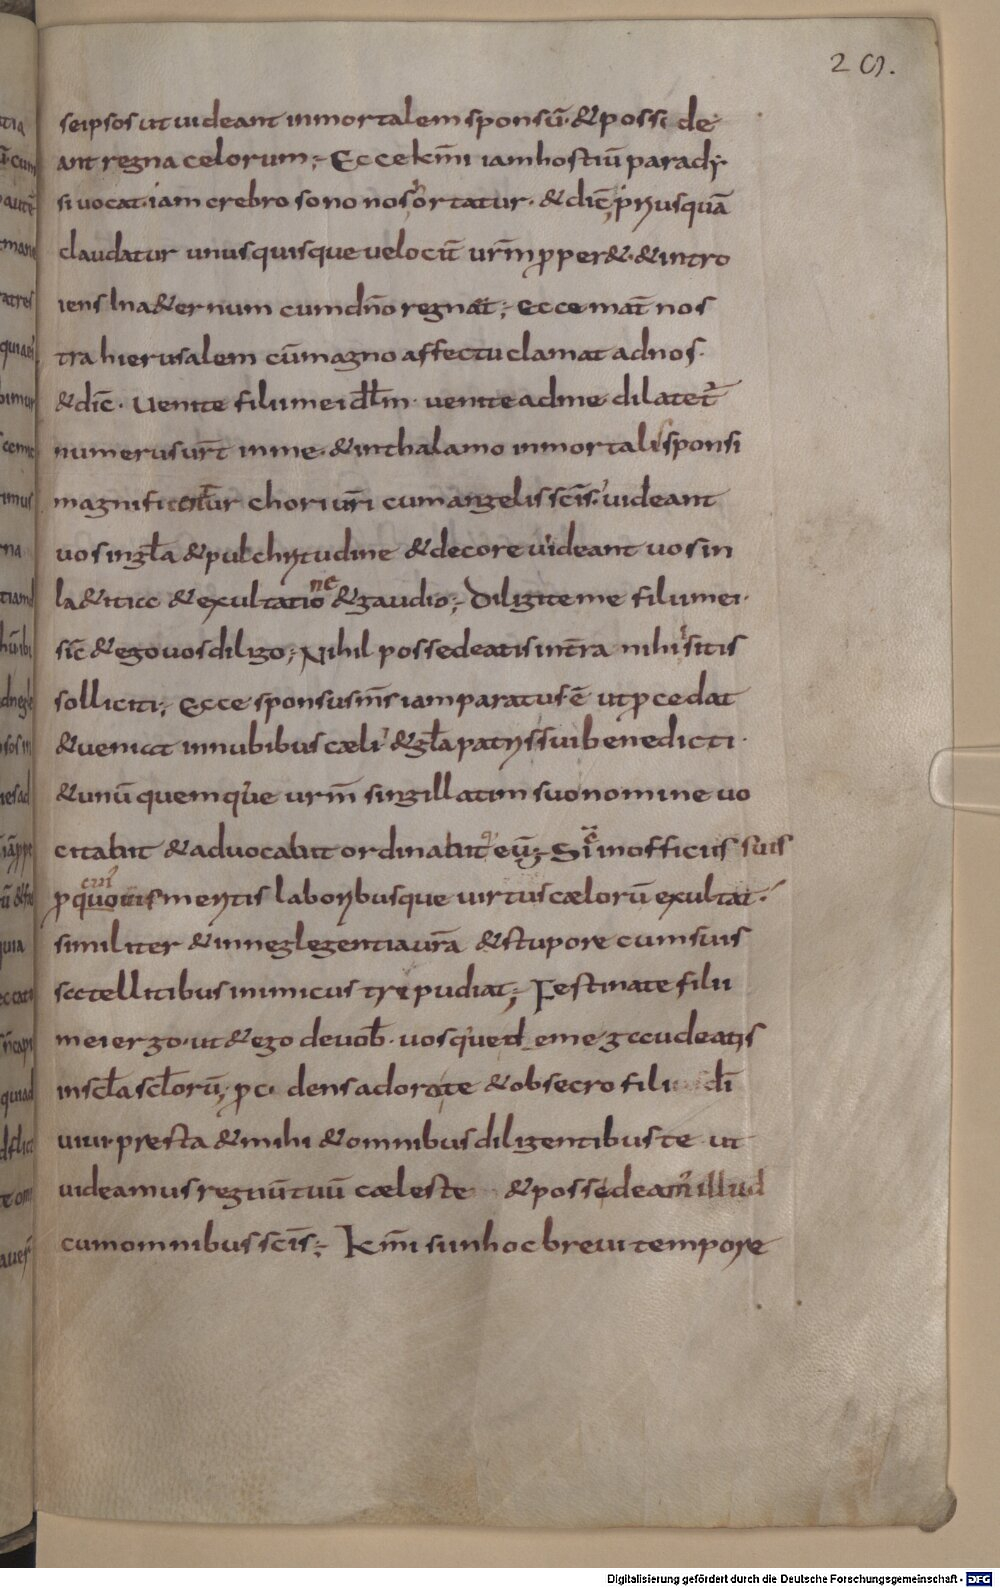 29.
seipsos ut uideant inmortalem sponsū. & posside
ant regna celorum; Ecce kr̄mi iam hostiū parady
si uocat. iam crebro sono nos ortatur. & dic̄ priusquā
claudatur unusquisque uelociт̄ ur̄m p̱per&. & intro
iens In a&ernum cum dn̄o regnat; Ecce mat̄ nos
tra hierusalem cū magno affectu clamat ad nos.
& dic̄. Uenite filii mei dl̄m. uenite ad me. dilatet̄
numerus ur̄t in me. & in thalamo inmortali sponsi
magnificentur chori ur̄i cum angelis sc̄is. uideant
uos in gl̄a & pulchritudine & decore uideant uos in
la&iticc & exultatione & gaudio; Diligite me filii mei.
sic̄ & ego uos diligo; Nihil possedeatis intr̄a nihil sitis
solliciti; Ecce sponsus ms̄ iam paratus ē ut p̱cedat
& ueniat in nubibus cæli & gl̄a patris sui benedicti.
& unū quemque ur̄m singillatim suo nomine uo
citabit & aduocabit ordinabit eū; Si in officiis suis
p̱ quouis meritis laboribusque uirtus cælorū exultat.
similiter & in neglegentia ur̄a & stupore cum suis
sctellitibus inimicus tripudiat; Festinate filii
mei ergo. ut & ego de uob̄. uosque d eme gccudeatis
in scl̄a scl̄orū; p̱c dens adorate & obsecro filii dī
uiui presta & mihi & omnibus diligentibus te ut
uideamus regnū tuū cæleste & possedeam illud
cum omnibus sc̄is; Kr̄mi si in hoc breui tempore
Digitalisierung gefördert durch die Deutsche Forschungsgemeinschaft - DFG